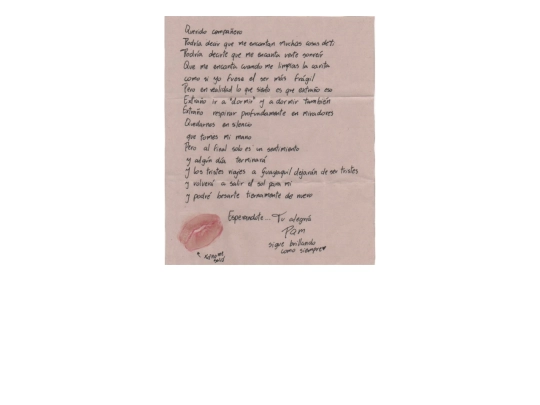 Querido compañero
Podría decir que me encantan muchas cosas de ti
Podría decirte que me encanta verte sonreír
Que me encanta cuando me limpias la carita
como si yo fuese el ser más frágil
Pero en realidad lo que siento es que extraño eso
Extraño ir a "dormir" y a dormir también
Extraño respirar profundamente en miradores
Quedarnos en silencio
que tomes mi mano
Pero al final solo es un sentimiento
y algún día terminará
y los tristes viajes a Guayaquil dejarán de ser tristes
y volverá a salir el sol para mi
y podré besarte tiernamente de nuevo
Esperandote... Tu alegría
Pam
sigue brillando
como siempre